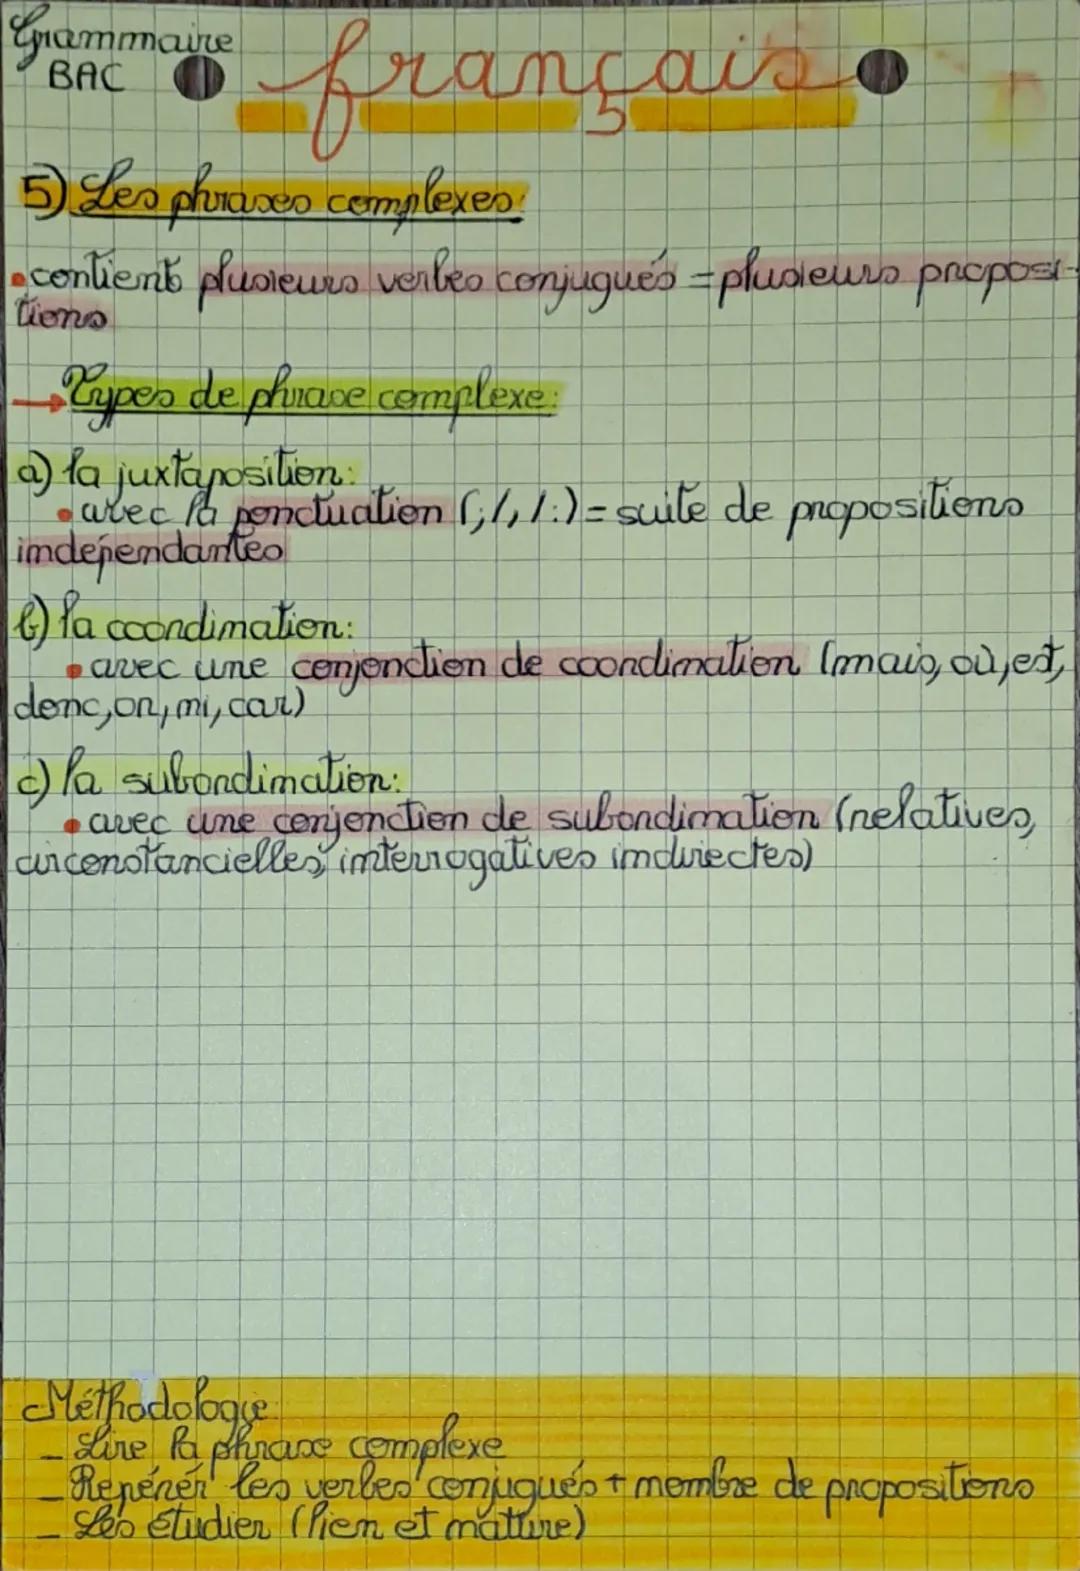 Grammaire
BAC
français
5) Les phrases complexes:
•contient plusieurs verbes conjugués = plusieurs proposi-
tions
→Types de phrase complexe:
a) la juxtaposition:
•avec la ponctuation (;/,/:)= suite de propositions
indépendantes
b) la coordination:
•avec une conjonction de coordination (mais, où, est,
donc, or, ni, car)
c) la subordination:
•avec une conjonction de subordination (relatives,
circonstancielles, interrogatives indirectes)
Méthodologie:
- Lire la phrase complexe
- Repérér les verbes conjugués + membre de propositions
- Les étudier (lien et mature)